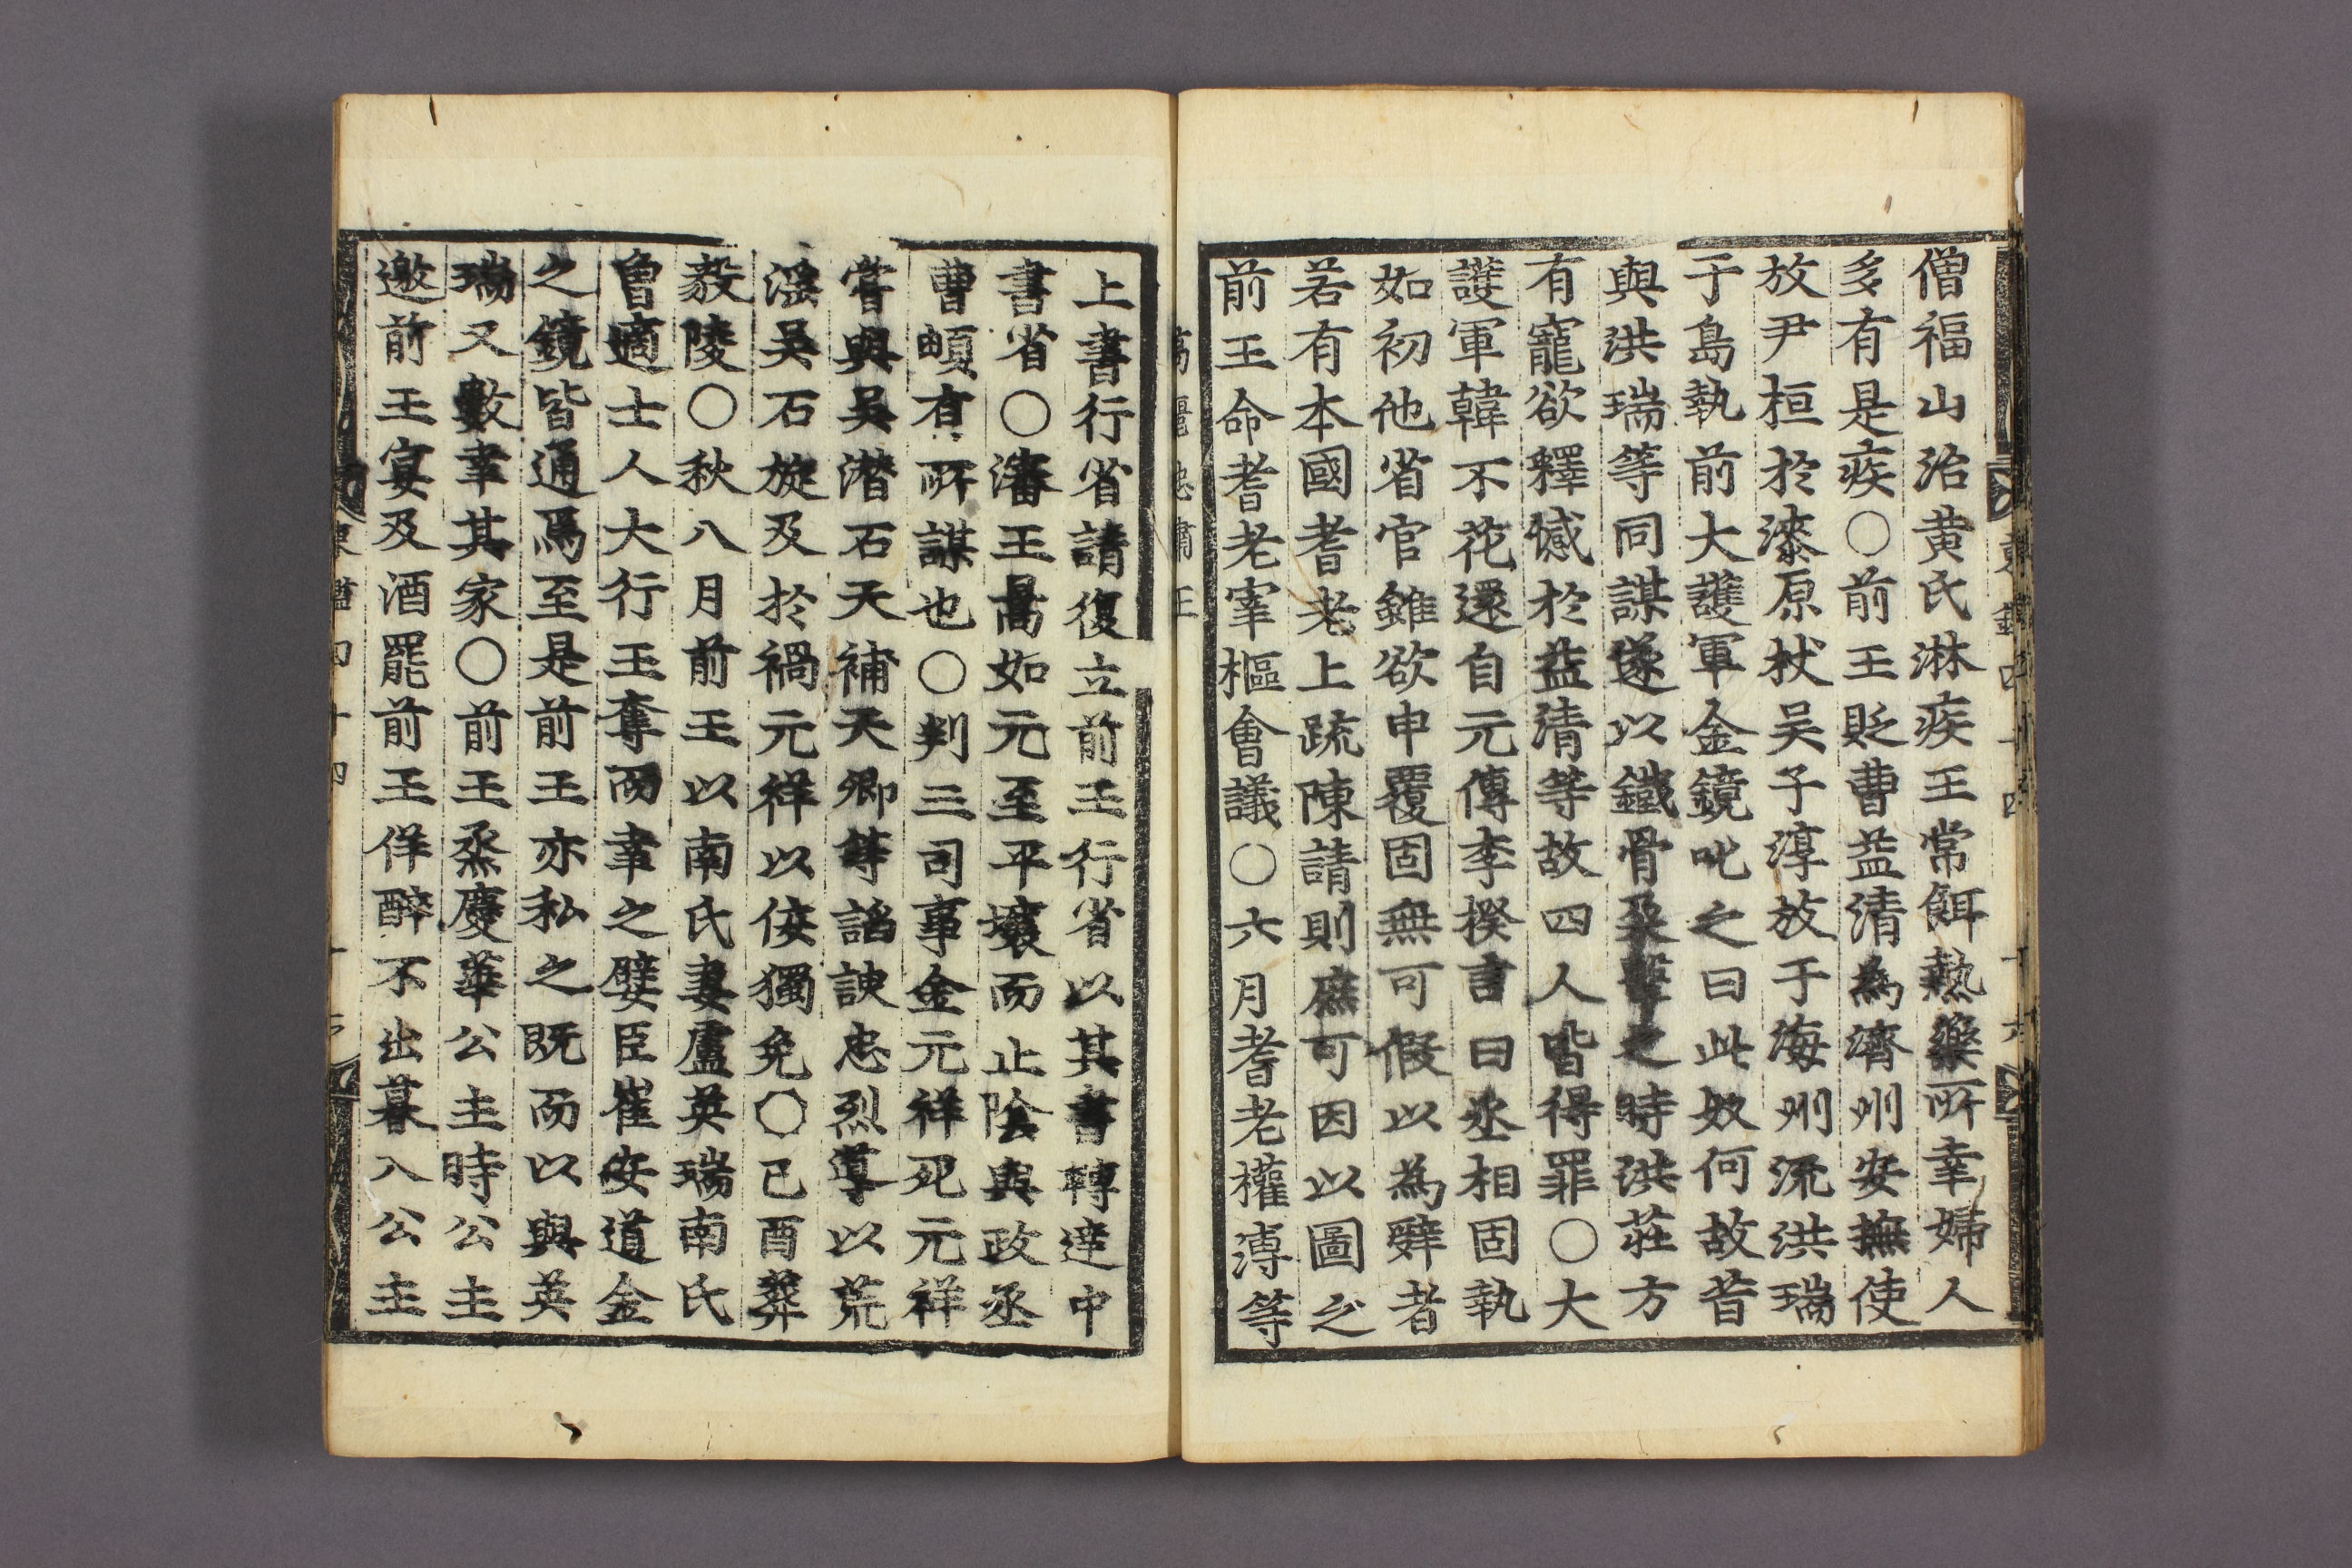 僧福山治黄氏淋疾王常餌熱藥所幸婦人
多有是疾○前王貶曹益清為濟州安撫使
放尹桓於漆原杖吴子淳放于海州流洪瑞
于島執前大護軍金鏡叱之曰此奴何故昔
與洪瑞等同謀遂以鐵骨朶擊之時洪莊方
有寵欲釋憾於益清等故四人皆得罪○大
護軍韓不花還自元傳李揆言曰丞相固執
如初他省官雖欲申覆固無可假以為辭者
若有本國耆老上疏陳請則庶可因以圖之
前王命耆老宰樞會議○六月耆老權溥等
高麗忠肅王
上書行省請復立前王行省以其書轉達中
書省○瀋王暠如元至平壤而止陰與政丞
曹頔有所謀也○判三司事金元祥死元祥
嘗與吴潜石天補天卿等諂諛忠烈導以荒
淫吴石旋及於禍元祥以佞獨免○己酉葬
毅陵○秋八月前王以南氏妻盧英瑞南氏
曾適士人大行王奪而幸之嬖臣崔安道金
之鏡皆通焉至是前王亦私之既而以與英
瑞又數幸其家○前王烝慶華公主時公主
邀前王宴及酒罷前王佯醉不出暮入公主